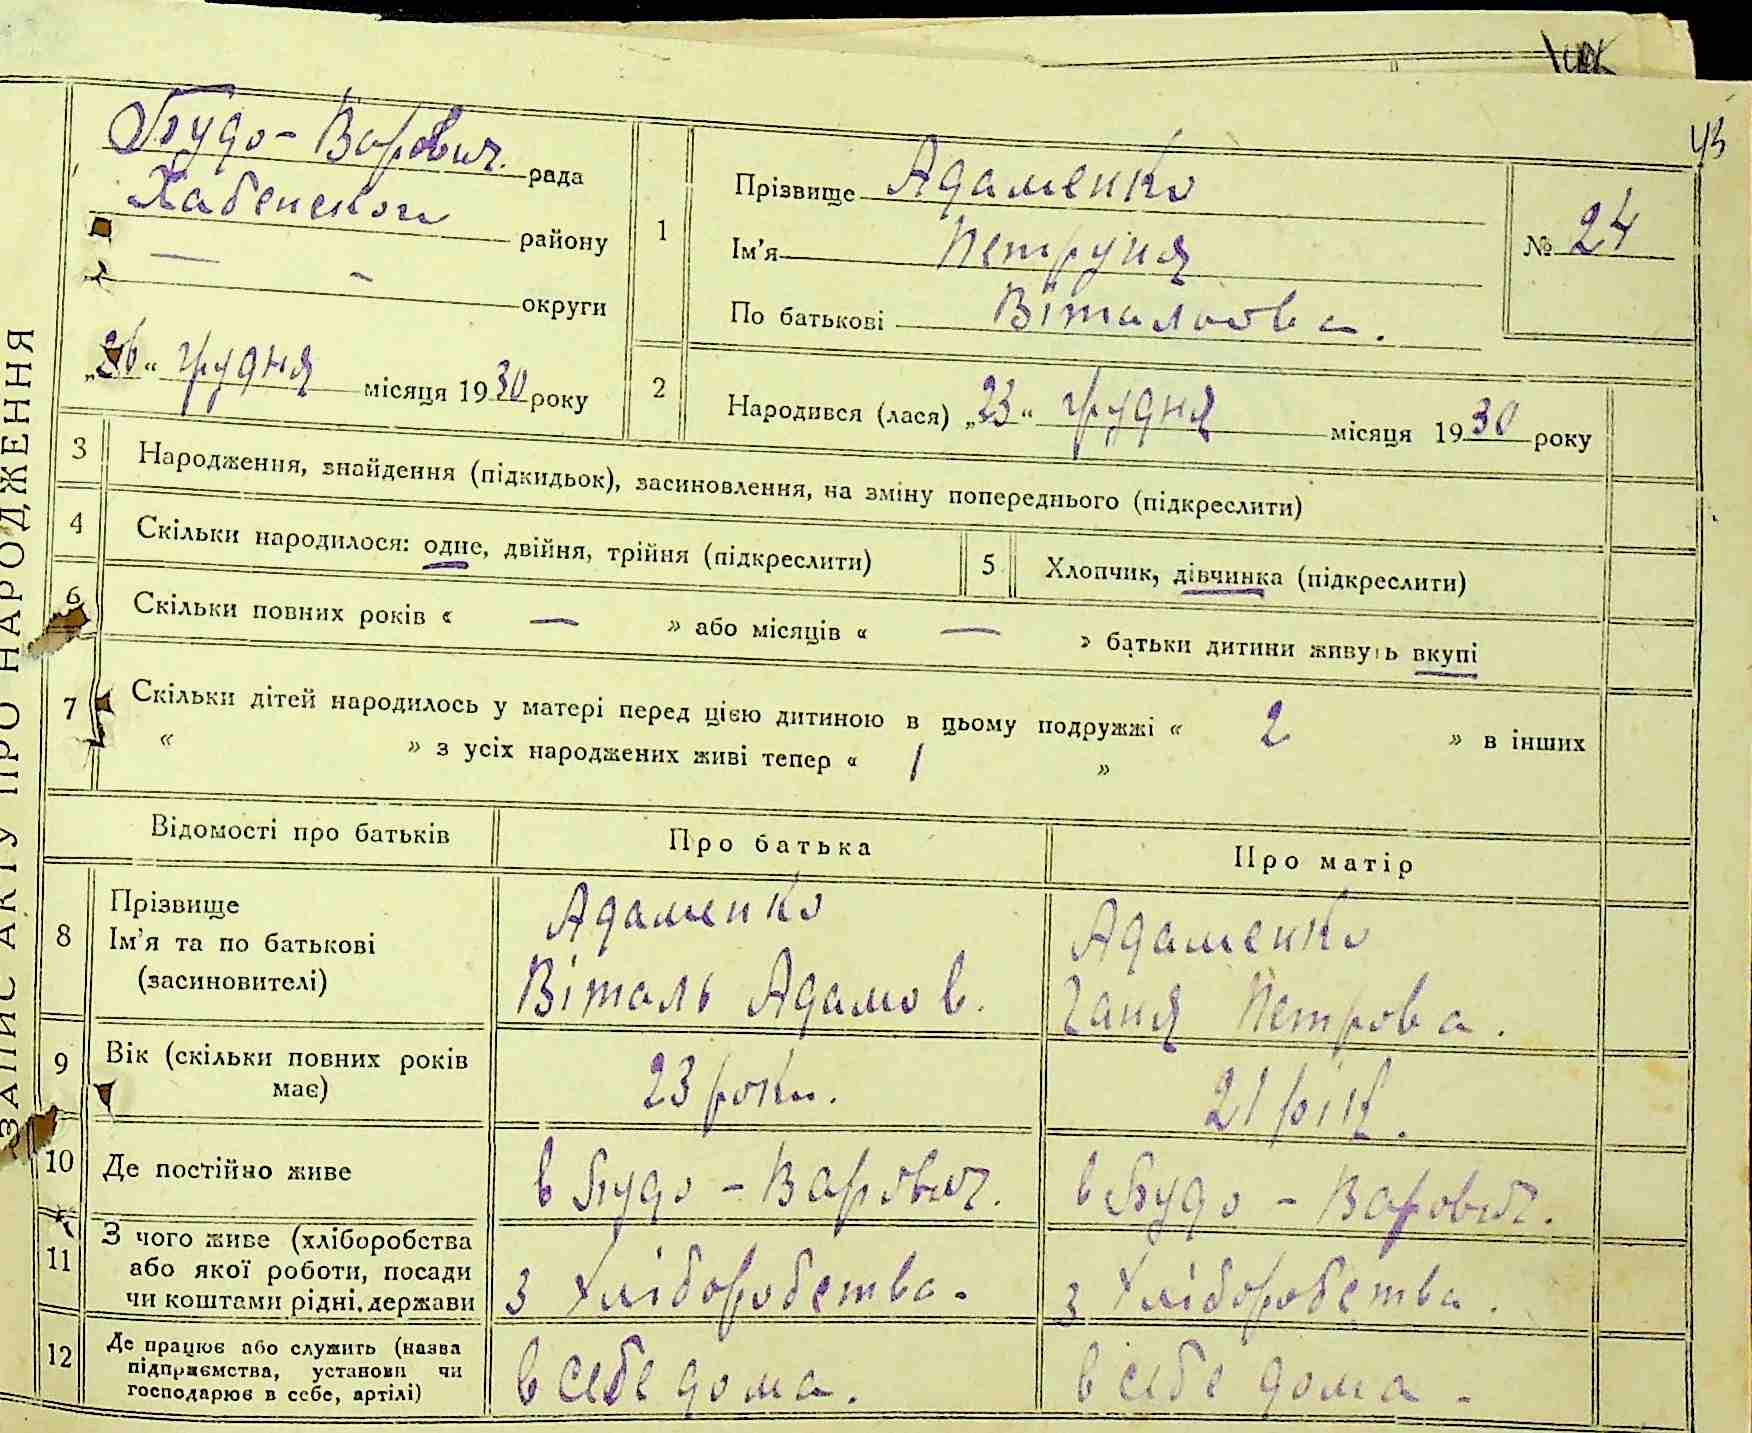 43
ЗАПИС АКТУ ПРО НАРОДЖЕННЯ
Будо-Варович. рада
Хабенского району
— - округи
„26“ грудня місяця 1930 року
1
Прізвище Адаменко
Ім'я Петруня
По батькові Вітальовва.
№ 24
2
Народився (лася) „23“ грудня місяця 1930 року
3 Народження, знайдення (підкидьок), засиновлення, на зміну попереднього (підкреслити)
4 Скільки народилося: одне, двійня, трійня (підкреслити)
5 Хлопчик, дівчинка (підкреслити)
6 Скільки повних років « — » або місяців « — » батьки дитини живуть вкупі
7 Скільки дітей народилось у матері перед цією дитиною в цьому подружжі « 2 » в інших
« » з усіх народжених живі тепер « 1 »
Відомості про батьків Про батька Про матір
8 Прізвище Ім'я та по батькові (засиновителі)
Адаменко
Віталь Адамов.
Адаменко
Ганя Петрова.
9 Вік (скільки повних років має) 23 роки. 21 рік.
10 Де постійно живе в Будо-Варович. в Будо-Варович.
11 З чого живе (хліборобства
або якої роботи, посади
чи коштами рідні, держави
з хліборобства. з хліборобства.
12 Де працює або служить (назва
підприємства, установи чи
господарює в себе, артілі)
в себе дома. в себе дома.